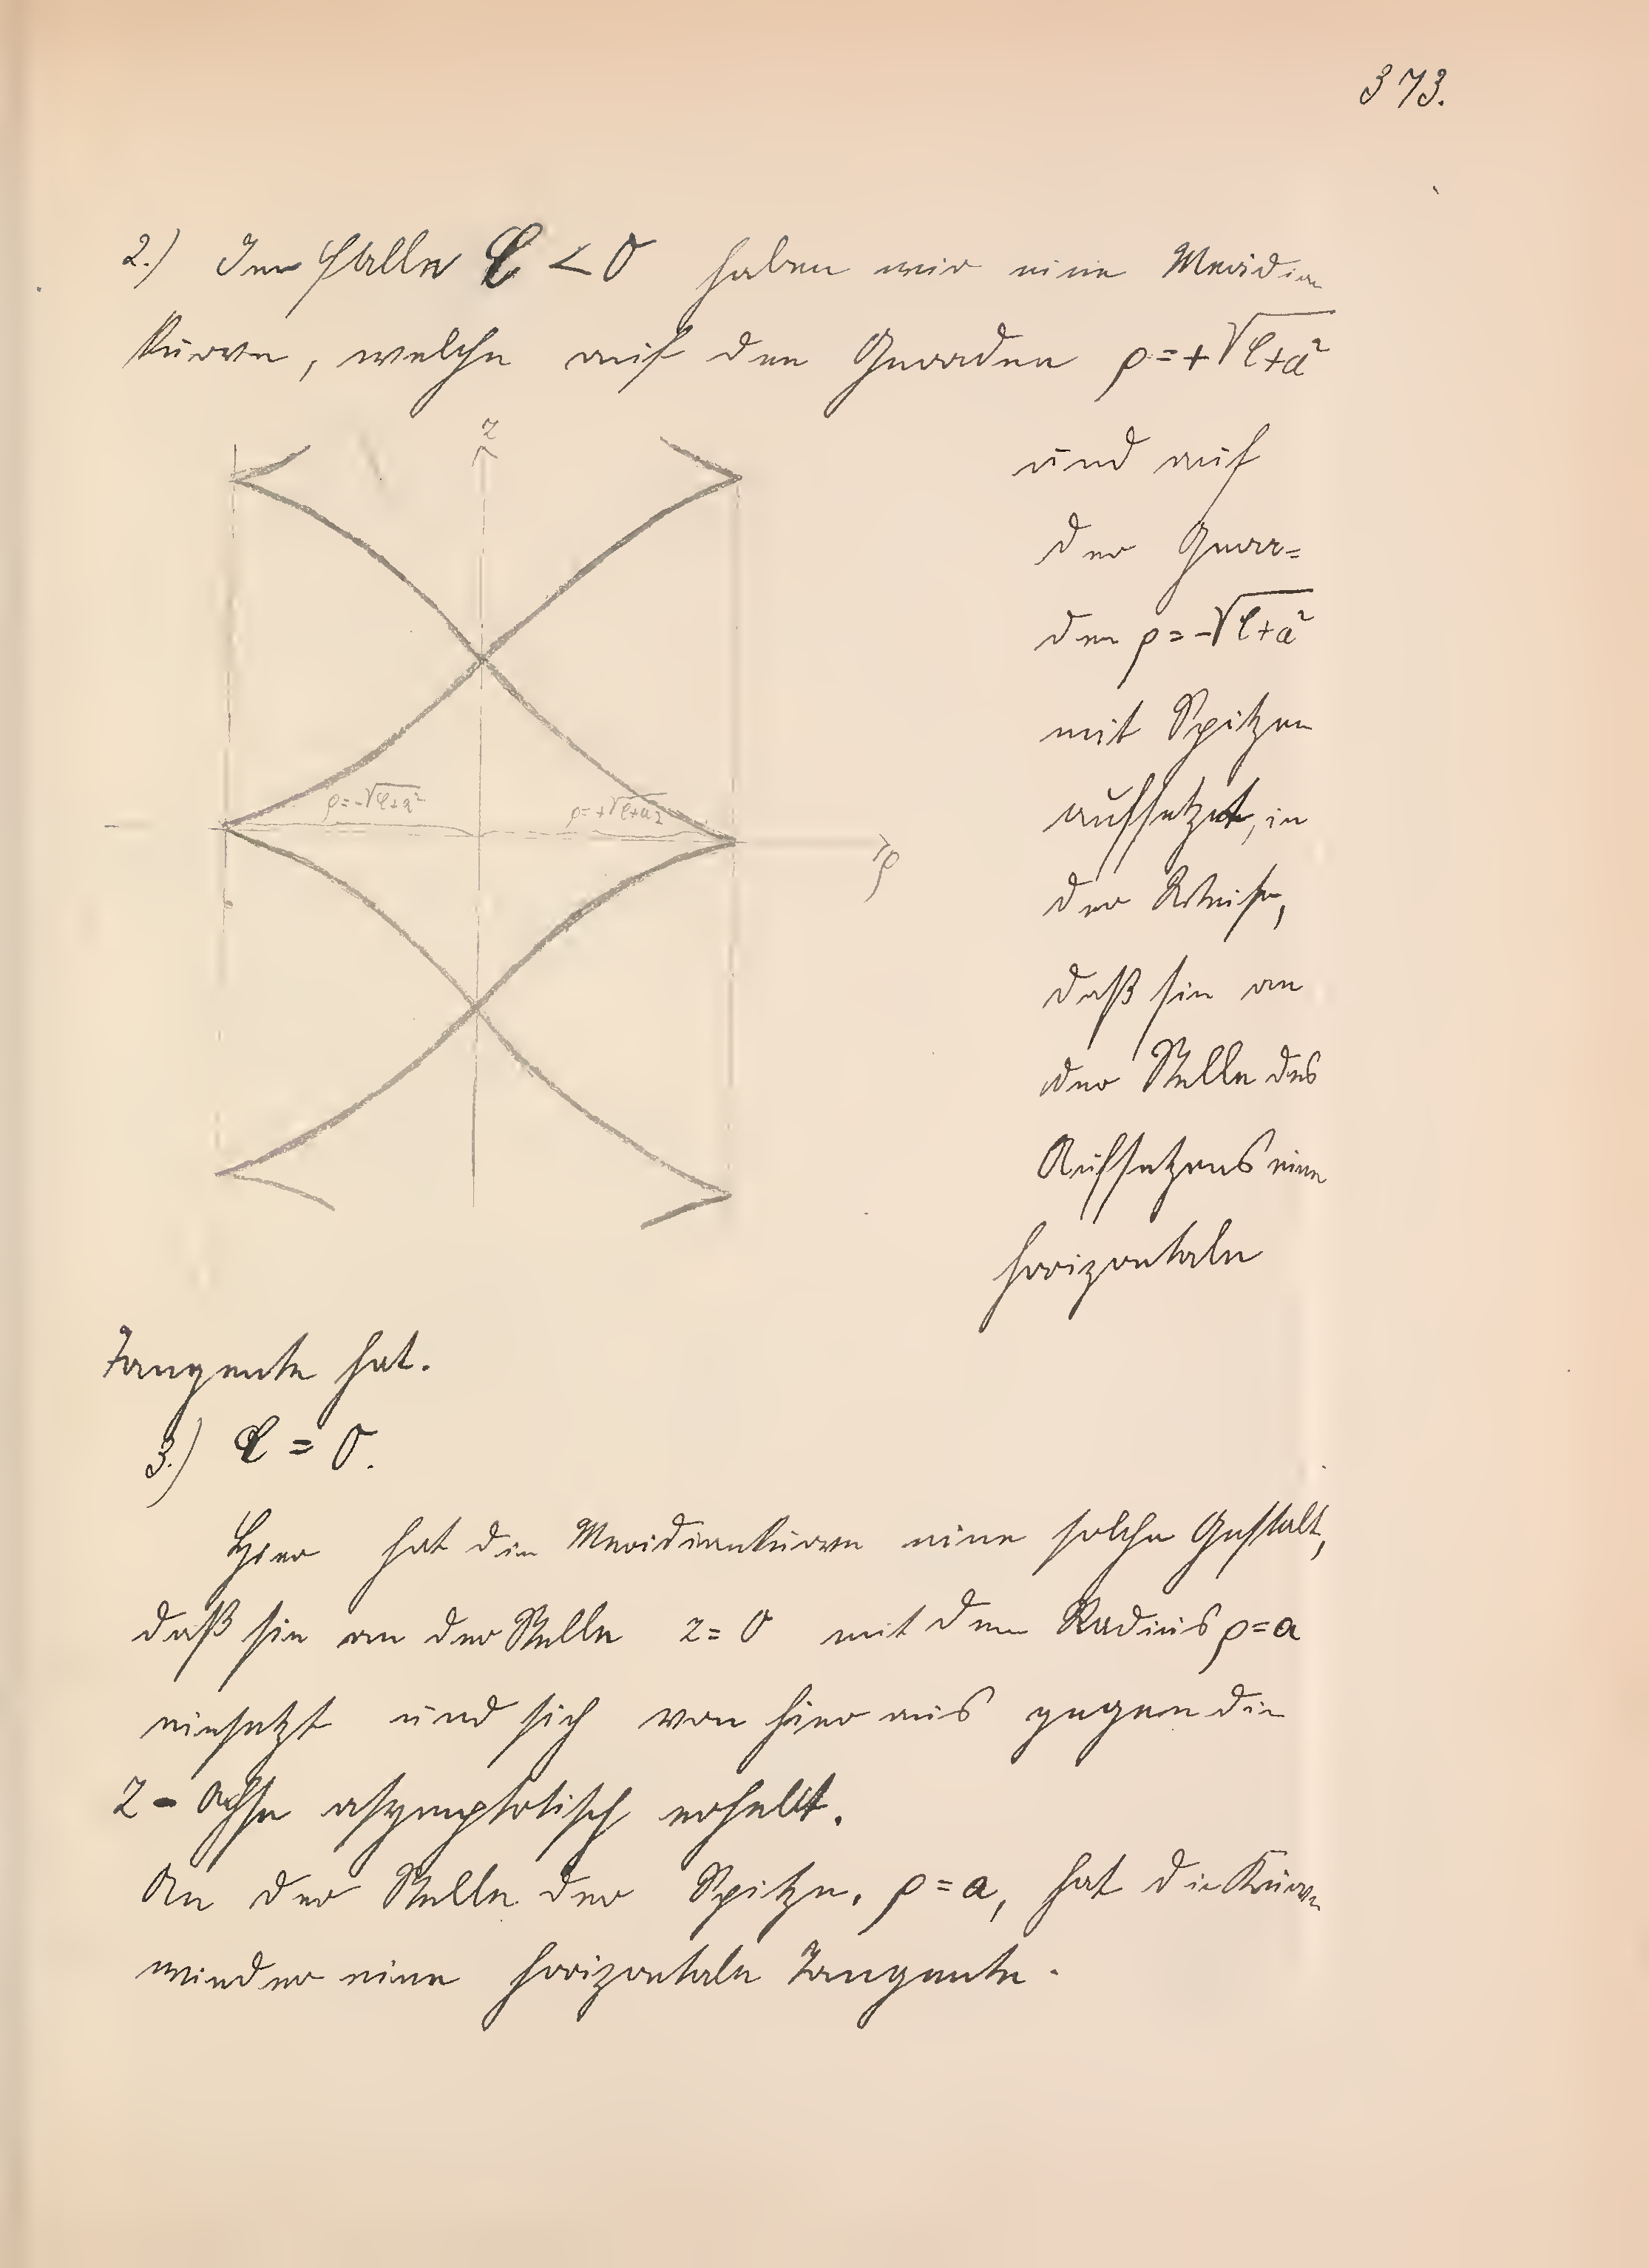 373.
2.) Im Falle C < 0 haben wir eine Meridian
kurve, welche auf den Geraden ρ = + √C+a²
und auf
der Gera=
den ρ = -√C+a²
mit Spitzen
aufsetzt, in
der Weise,
daß sie an
der Stelle des
Aufsetzens eine
horizontale
z
ρ=-√C+a²
ρ=+√C+a²
ρ
Tangente hat.
3.) C = 0.
Hier hat die Meridiankurve eine solche Gestalt,
daß sie an der Stelle z = 0 mit dem Radius ρ=a
einsetzt und sich von hier aus gegen die
z - Achse asymptotisch
An der Stelle der Spitze, ρ = a, hat die Kurve
wieder eine horizontale Tangente.